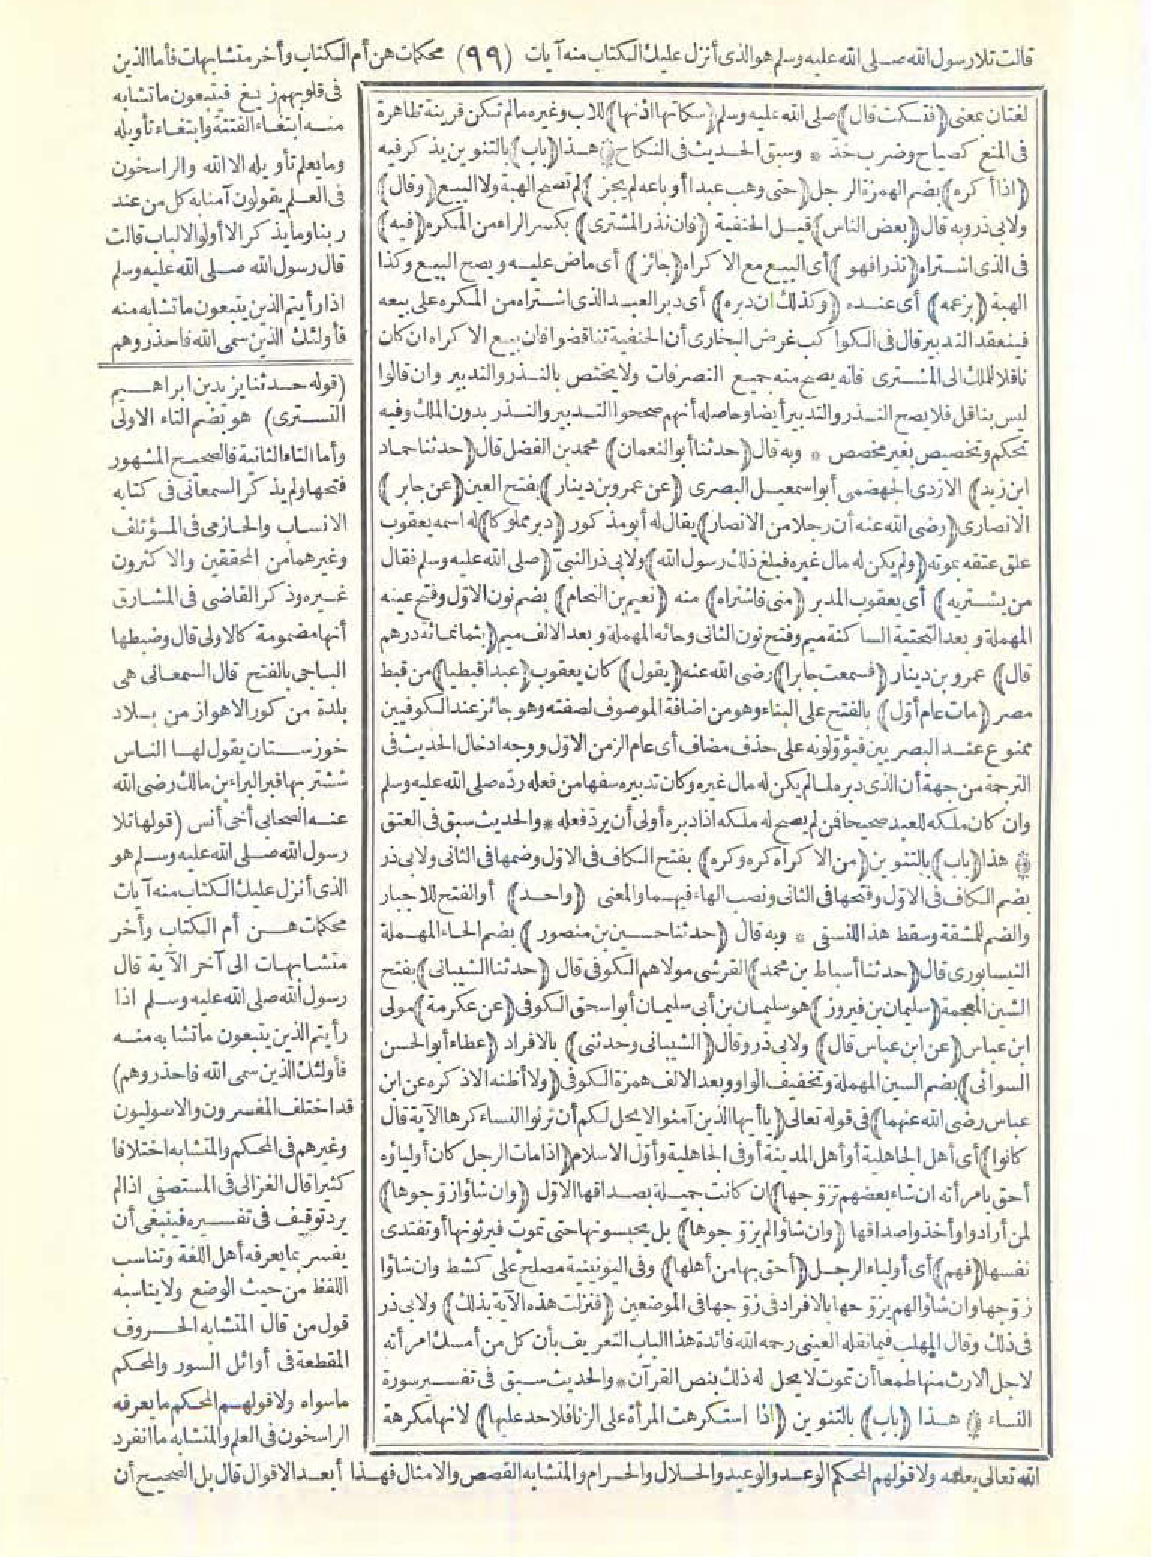 قالت تلا رسول الله صلى الله عليه وسلم هو الذى أنزل عليك الكتاب منه آيات (٩٩) محكمات هن أم الكتاب وأخر متشابهات فأما الذين
فى قلوبهم زيغ فيتبعون ما تشابه
منه ابتغاء الفتنة وابتغاء تأويله
وما يعلم تأويله الا الله والراسخون
فى العلم يقولون آمنا به كل من عند
ربنا وما يذكر الا أولو الالباب قالت
قال رسول الله صلى الله عليه وسلم
اذا رأيتم الذين يتبعون ما تشابه منه
فأولئك الذين سمى الله فاحذروهم
(قوله حدثنا يزيد بن ابراهيم
التسترى) هو بضم التاء الاولى
وأما التاء الثانية فالصحيح المشهور
فتحها ولم يذكر السمعانى فى كتابه
الانساب والحازمى فى المؤتلف
وغيرهما من المحققين والاكثرون
غيره وذكر القاضى فى المشارق
أنها مضمومة كالاولى قال وضبطها
الباجى بالفتح قال السمعانى هى
بلدة من كور الاهواز من بلاد
خوزستان يقول لها الناس
شتر بها قبر البراء بن مالك رضى الله
عنه الصحابى أخى أنس (قولها تلا
رسول الله صلى الله عليه وسلم هو
الذى أنزل عليك الكتاب منه آيات
محكمات هن أم الكتاب وأخر
متشابهات الى آخر الآية قال
رسول الله صلى الله عليه وسلم اذا
رأيتم الذين يتبعون ما تشابه منه
فأولئك الذين سمى الله فاحذروهم)
قد اختلف المفسرون والاصوليون
وغيرهم فى المحكم والمتشابه اختلافا
كثيرا قال الغزالى فى المستصفى اذا لم
يرد توقيف فى تفسيره فينبغى أن
يفسر بما يعرفه أهل اللغة وتناسب
اللفظ من حيث الوضع ولا يناسبه
قول من قال المتشابه الحروف
المقطعة فى أوائل السور والمحكم
ما سواه ولا قولهم المحكم ما يعرفه
الراسخون فى العلم والمتشابه ما انفرد
الله تعالى بعلمه ولا قولهم المحكم الوعد والوعيد والحلال والحرام والمتشابه القصص والامثال فهذا أبعد الاقوال قال بل الصحيح أن
لغتان بمعنى (فتسكت قال) صلى الله عليه وسلم (سكاتها اذنها) للاب وغيره ما لم تكن قرينة ظاهرة
فى المنع كصياح وضرب خد * وسبق الحديث فى النكاح هذا (باب) بالتنوين يذكر فيه
(اذا أكره) بضم الهمزة الرجل (حتى وهب عبدا أو باعه لم يجز) لم تصح الهبة ولا البيع (وقال)
ولابى ذر وبه قال (بعض الناس) قيل الحنفية (فان نذر المشترى) بكسر الراء من المكره (فيه)
فى الذى اشتراه (نذرا فهو) أى البيع مع الاكراه (جائز) أى ماض عليه ويصح البيع وكذا
الهبة (بزعمه) أى عنده (وكذلك ان دبره) أى دبر العبد الذى اشتراه من المكره على بيعه
فينعقد التدبير قال فى الكواكب غرض البخارى أن الحنفية تناقضوا فان بيع الاكراه ان كان
ناقلا للملك الى المشترى فانه يصح منه جميع التصرفات ولا يختص بالنذر والتدبير وان قالوا
ليس بناقل فلا يصح النذر والتدبير أيضا وحاصله أنهم صححوا التدبير والنذر بدون الملك وفيه
تحكم وتخصيص بغير مخصص * وبه قال (حدثنا أبو النعمان) محمد بن الفضل قال (حدثنا حماد
ابن زيد) الازدى الجهضمى أبو اسمعيل البصرى (عن عمرو بن دينار) بفتح العين (عن جابر)
الانصارى (رضى الله عنه أن رجلا من الانصار) يقال له أبو مذكور (دبر مملوكا) له اسمه يعقوب
علق عتقه بموته (ولم يكن له مال غيره فبلغ ذلك رسول الله) ولابى ذر النبى (صلى الله عليه وسلم فقال
من يشتريه) أى يعقوب المدبر (منى فاشتراه) منه (نعيم بن النحام) بضم نون الاول وفتح عينه
المهملة وبعد التحتية الساكنة ميم وفتح نون الثانى وحائه المهملة وبعد الالف ميم (بثمانمائة درهم
قال) عمرو بن دينار (فسمعت جابرا) رضى الله عنه (يقول) كان يعقوب (عبدا قبطيا) من قبط
مصر (مات عام أول) بالفتح على البناء وهو من اضافة الموصوف لصفته وهو جائز عند الكوفيين
ممنوع عند البصريين فيؤولونه على حذف مضاف أى عام الزمن الاول ووجه ادخال الحديث فى
الترجمة من جهة أن الذى دبره لما لم يكن له مال غيره وكان تدبيره سفها من فعله رده صلى الله عليه وسلم
وان كان ملكه للعبد صحيحا فمن لم يصح له ملكه اذا دبره أولى أن يرد فعله * والحديث سبق فى العتق
هذا (باب) بالتنوين (من الاكراه كره وكره) بفتح الكاف فى الاول وضمها فى الثانى ولابى ذر
بضم الكاف فى الاول وفتحها فى الثانى ونصب الهاء فيهما والمعنى (واحد) أو الفتح للاجبار
والضم للمشقة وسقط هذا للنسفى * وبه قال (حدثنا حسين بن منصور) بضم الحاء المهملة
النيسابورى قال (حدثنا أسباط بن محمد) القرشى مولاهم الكوفى قال (حدثنا الشيبانى) بفتح
الشين المعجمة (سليمان بن فيروز) هو سليمان بن أبى سليمان أبو اسحق الكوفى (عن عكرمة) مولى
ابن عباس (عن ابن عباس قال) ولابى ذر وقال (الشيبانى وحدثنى) بالافراد (عطاء أبو الحسن
السوائى) بضم السين المهملة وتخفيف الواو وبعد الالف همزة الكوفى (ولا أظنه الا ذكره عن ابن
عباس رضى الله عنهما) فى قوله تعالى (يا أيها الذين آمنوا لا يحل لكم أن ترثوا النساء كرها الآية قال
كانوا) أى أهل الجاهلية أو أهل المدينة أو فى الجاهلية وأول الاسلام (اذا مات الرجل كان أولياؤه
أحق بامرأته ان شاء بعضهم تزوجها) ان كانت جميلة بصداقها الاول (وان شاؤا زوجوها)
لمن أرادوا وأخذوا صداقها (وان شاؤا لم يزوجوها) بل يحبسونها حتى تموت فيرثونها أو تفتدى
نفسها (فهم) أى أولياء الرجل (أحق بها من أهلها) وفى اليونينية مصلح على كشط وان شاؤا
زوجها وان شاؤا لم يزوجها بالافراد فى زوجها فى الموضعين (فنزلت هذه الآية بذلك) ولابى ذر
فى ذلك وقال المهلب فيما نقله العينى رحمه الله فائدة هذا الباب التعريف بأن كل من أمسك امرأته
لاجل الارث منها طمعا أن تموت لا يحل له ذلك بنص القرآن * والحديث سبق فى تفسير سورة
النساء هذا (باب) بالتنوين (اذا استكرهت المرأة على الزنا فلا حد عليها) لانها مكرهة